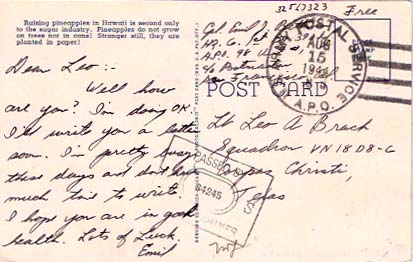 Raising pineapples in Hawaii is second only
to the sugar industry. Pineapples do not grow
on trees nor in cans! Stranger still, they are
planted in paper!
Dear Leo:-
Well how
are you? I'm doing OK.
I'll write you a letter
soon. I'm pretty busy
these days and don't have
much time to write.
I hope you are in good
health. Lots of Luck.
Emil
32567323
Free
Cpl. Emil J.
HQ. Co.
A.P.O. 98
c/o Postmaster
San Francisco
U.S. ARMY POSTAL SERVICE
AUG
15
A.P.O.
POST CARD
PASSED BY
34245
Lt Leo A Brach
Squadron VN18D8-C
Corpus Christi,
Texas